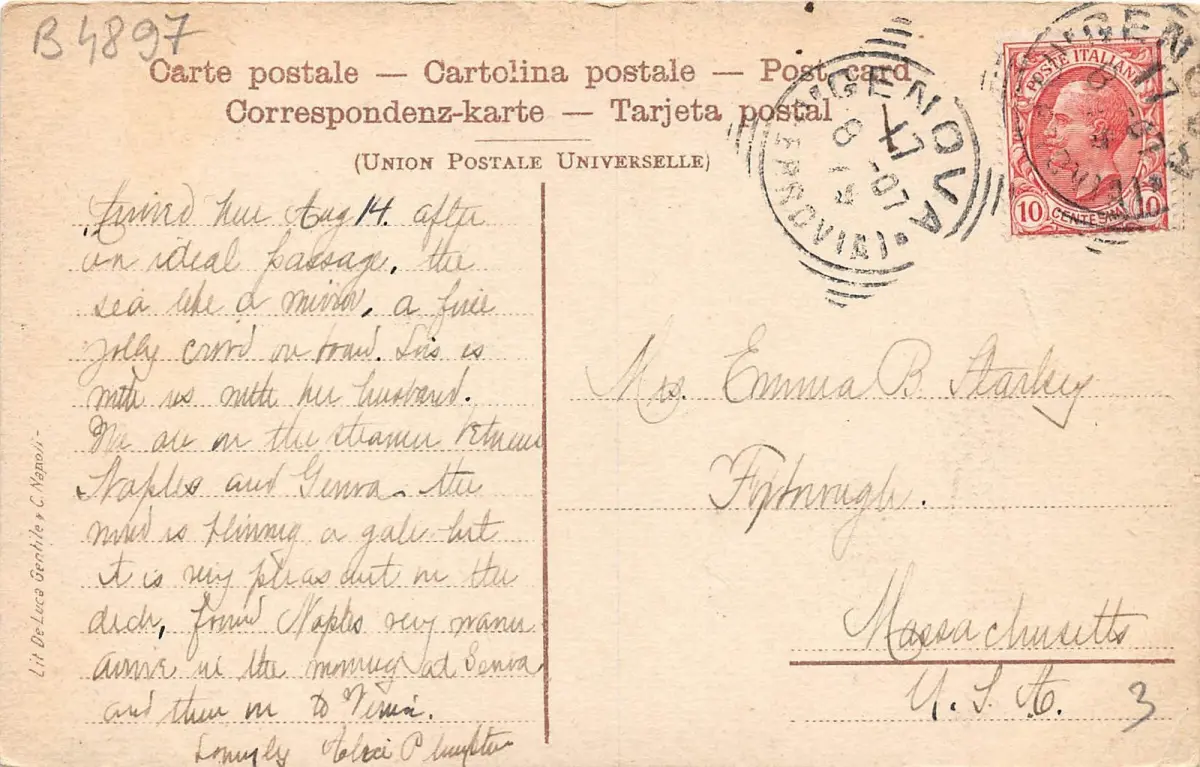 B 4897
Carte postale — Cartolina postale — Post card
Correspondenz-karte — Tarjeta postal
(UNION POSTALE UNIVERSELLE)
GENOVA
(FERROVIA)
17
8
-07
POSTE ITALIANE
10 CENTESIMI 10
Arrived here Aug 14. after
an ideal passage, the
sea like a mirror, a fine
jolly crowd on board. Lois is
with us with her husband.
We are on the steamer between
Naples and Genoa. the
wind is blowing a gale but
it is very pleasant on the
deck, found Naples very warm
arrive in the morning at Genoa
and then on to
Lovingly
Mrs. Emma B. Starkey
Massachusetts
U. S. A.
3
Lit De Luca Gentile & C. Napoli -